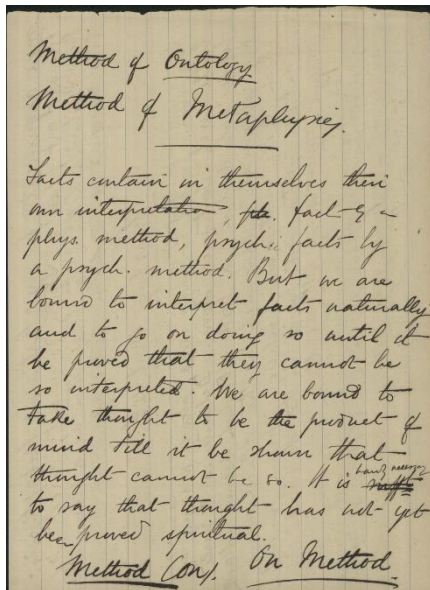 Method of Ontology
Method of Metaphysics.
Facts contain in themselves their
own interpretation, fact by a
phys. method, psych. facts by
a psych. method. But we are
bound to interpret facts naturally
and to go on doing so until it
be proved that they cannot be
so interpreted. We are bound to
take thought to be the product of
mind till it be shown that
thought cannot be so. It is hardly necessary
to say that thought has not yet
been proved spiritual.
Method Conf. On Method.